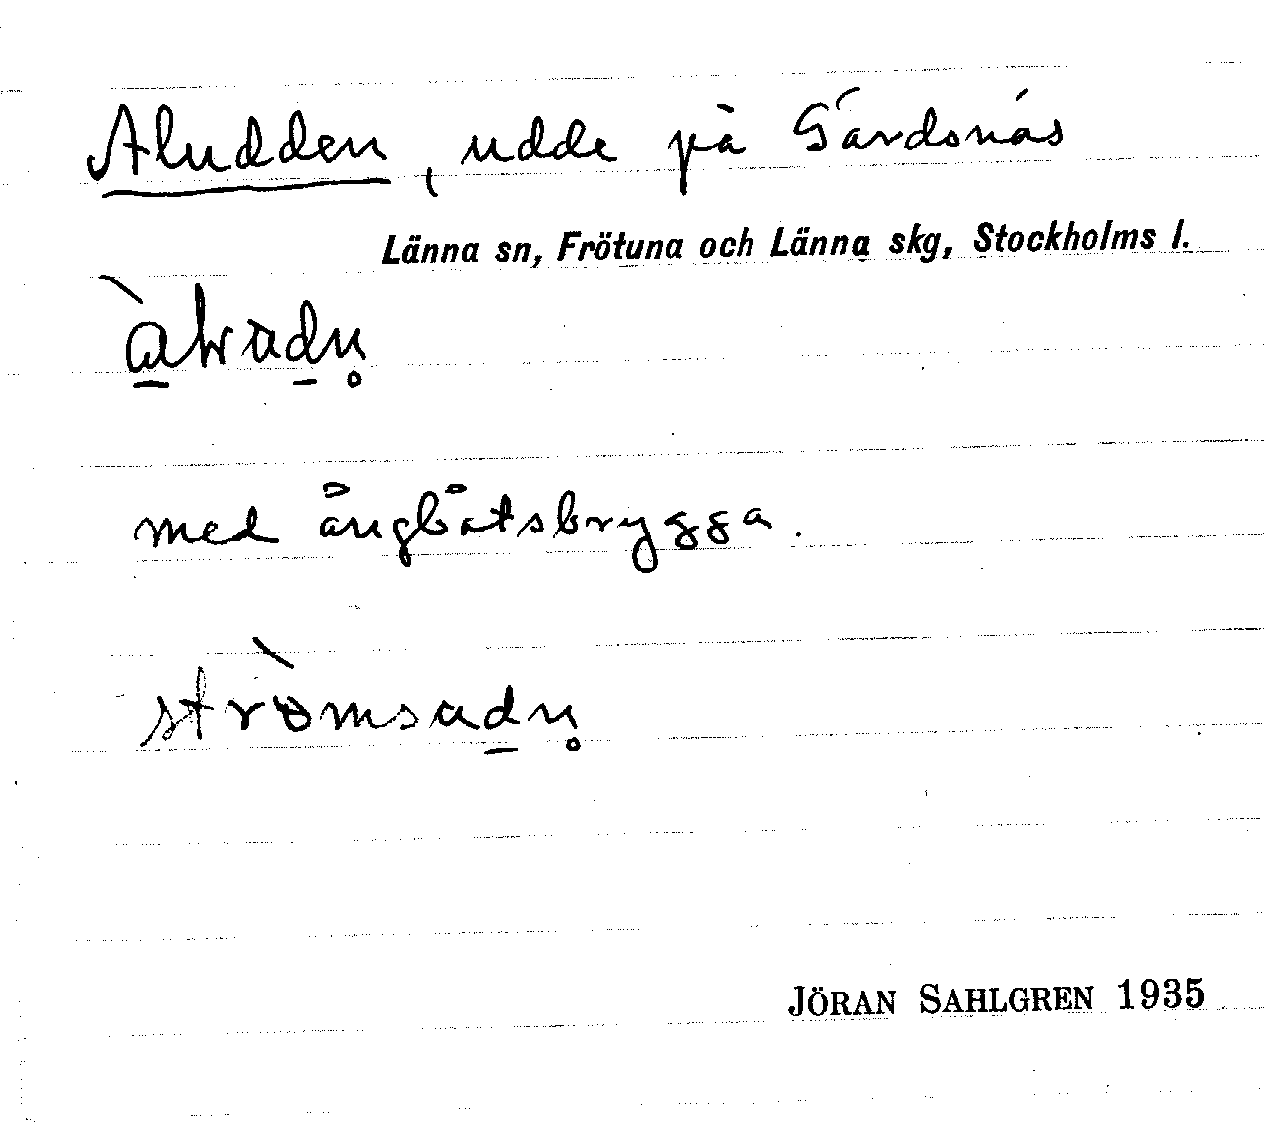 Aludden, udde på Gärdsnäs
Länna sn, Frötuna och Länna skg, Stockholms l.
med ångbåtsbrygga.
strömsadn̥
JÖRAN SAHLGREN 1935